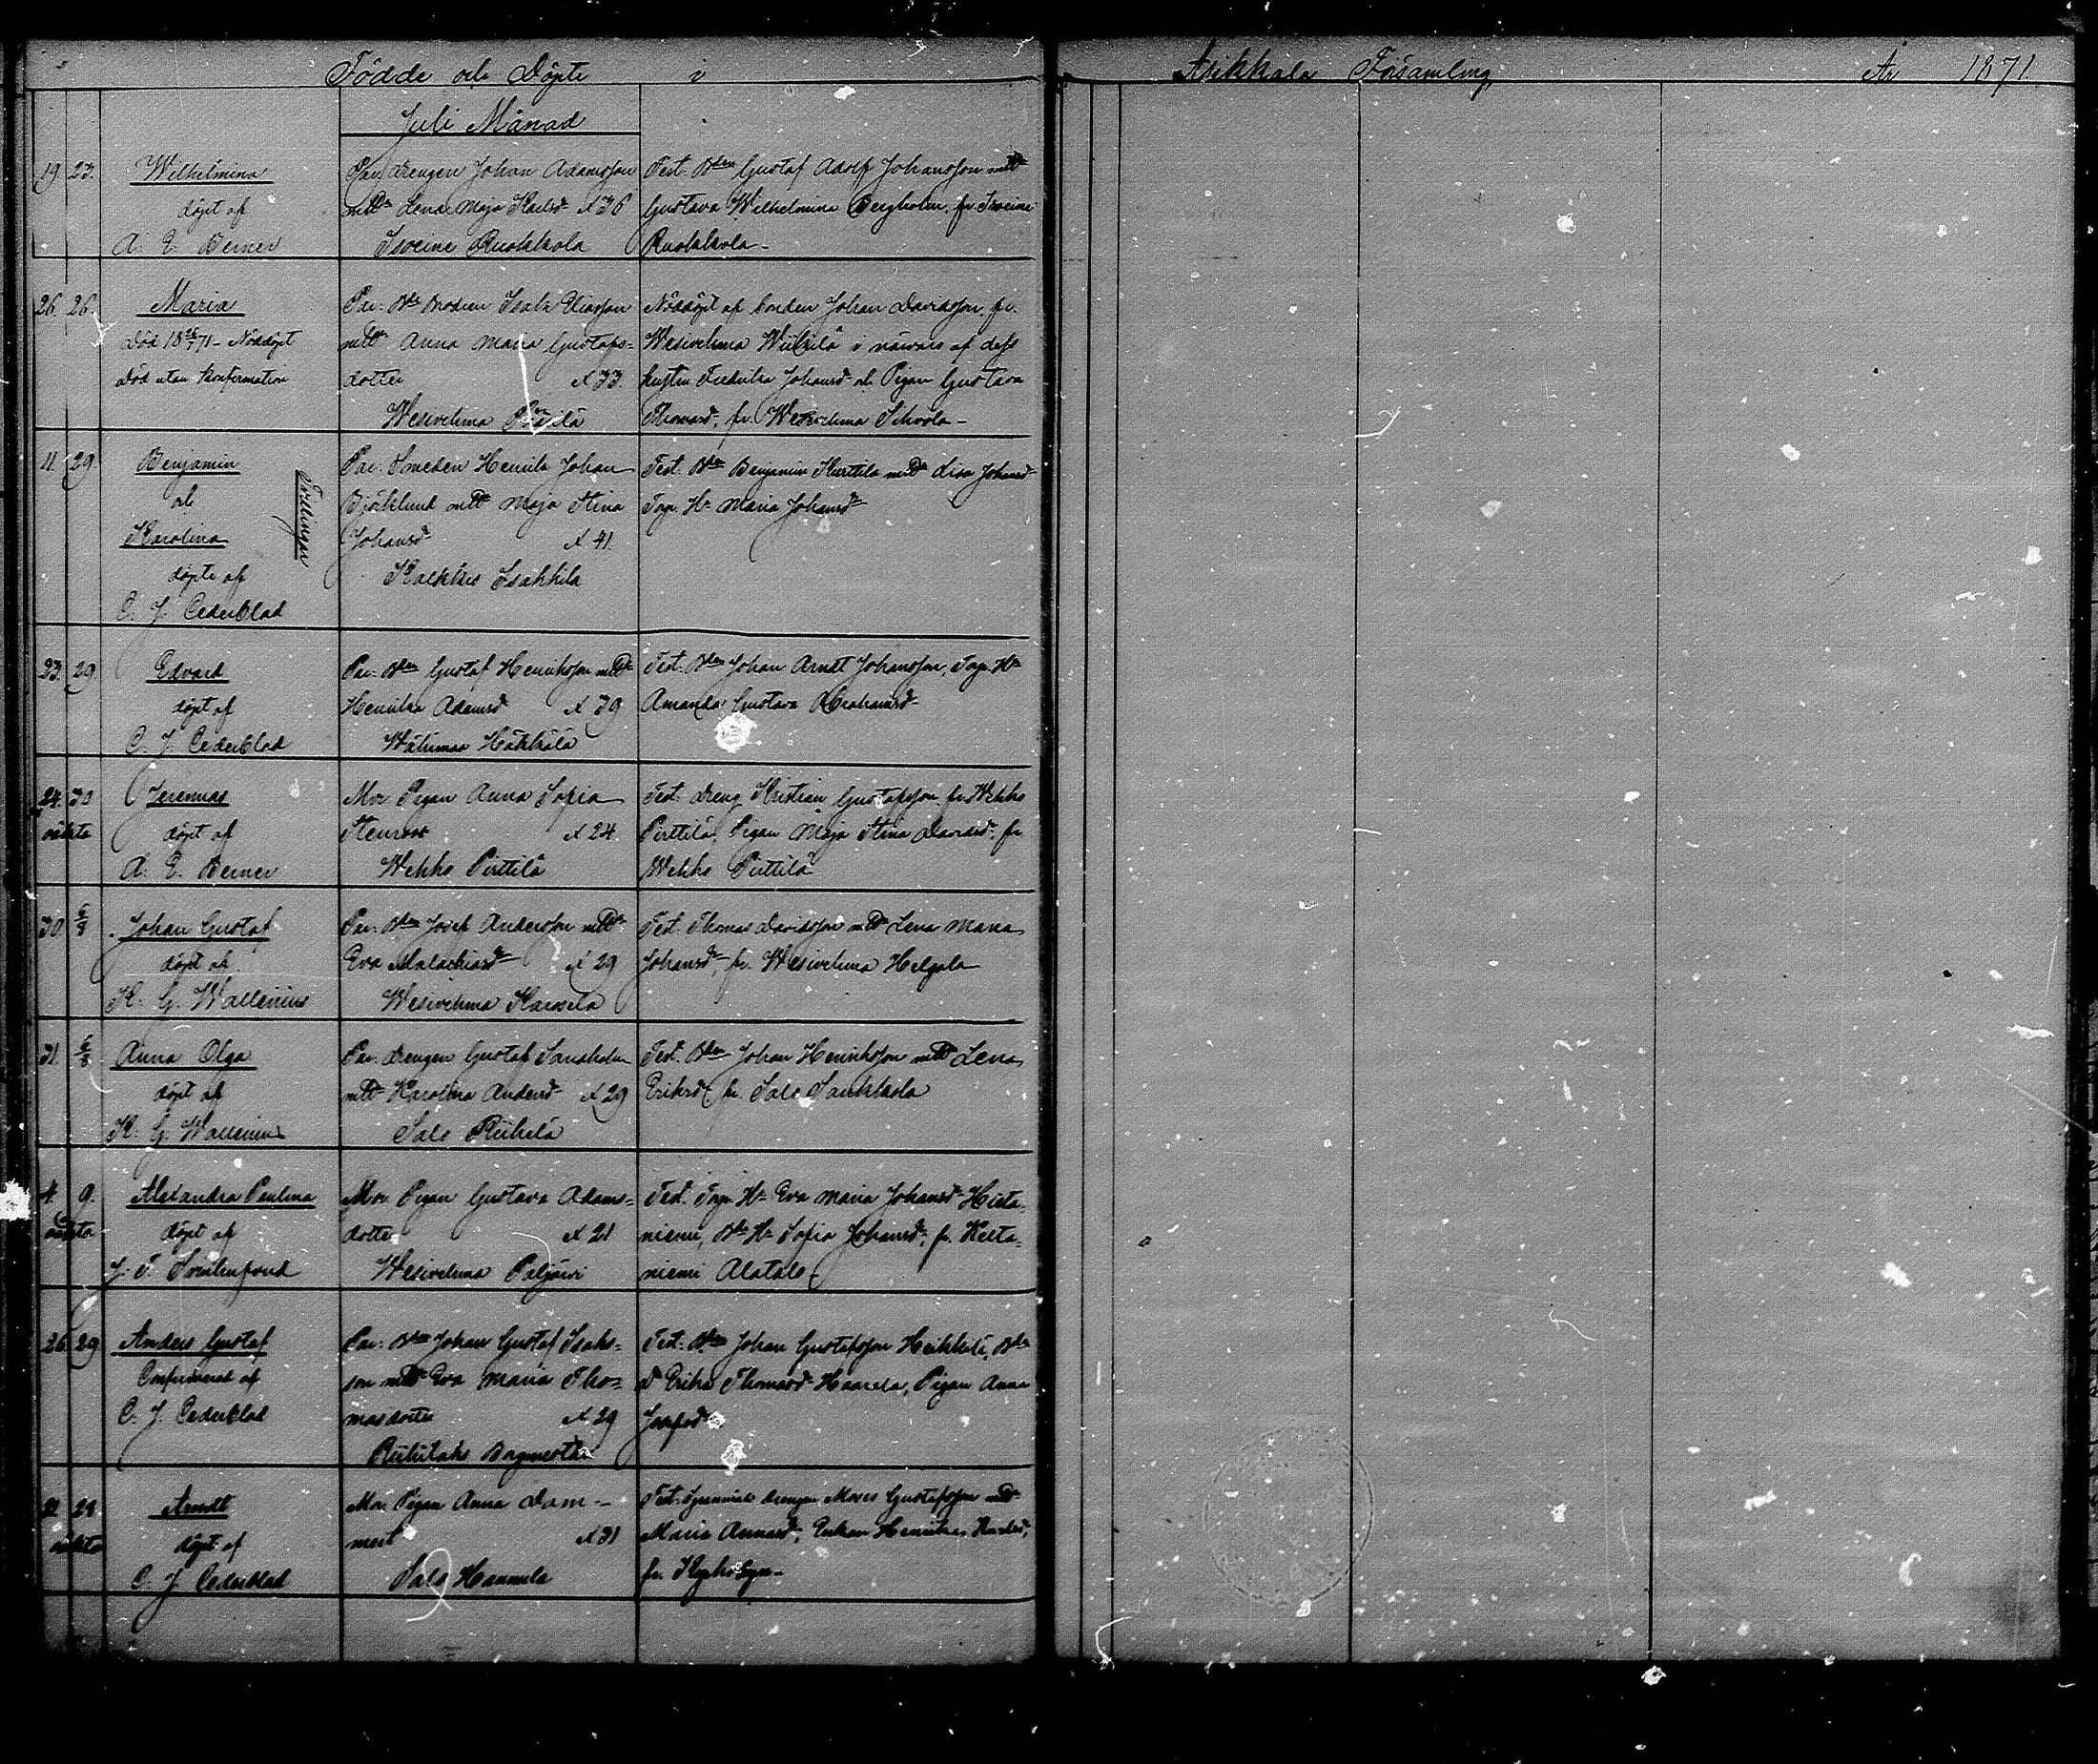 Födde och Döpte i Asikkala Församling År 1871
Juli Månad
19 23. Wilhelmina
döpt af
A. E. Berner
Par. drengen Johan Adamsson
mtt Lena Maja Karlsd. x 36
Isoeine Ruokkola
Test. Bdn Gustaf Adolf Johansson mtt
Gustava Wilhelmina Bergholm fr Isoeine
Ruokkola
26. 26. Maria
död 18 26/7 71 - Nöddöpt
död utan konfirmation
Par. Bde brodren Isak Eliasson
mtt Anna Maria Gustafs=
dotter x 33.
Wesivehma
Nöddöpt af bonden Johan Davidsson fr.
Wesivehma Wiikilä i närvaro af dess
hustru Fredrika Johansd. och Pigan Gustava
Thomasd. fr. Wesivehma Sihvola
11. 29. Benjamin
och
Karolina
Tvillingar
döpte af
C. J. Cederblad
Par. Smeden Henrik Johan
Björklund mtt Maja Stina
Johansd. x 41.
Kalkkis Isakkila
Test. Bdn Benjamin Kurttila mtt Lisa Johansd
Torp. H. Maria Johansd
23. 29. Edvard
döpt af
C. J. Cederblad
Par. Bdn Gustaf Henriksson mtt
Henrika Adamsd x 39
Wähimaa Häkkälä
Test. Bdn Johan Arndt Johansson, Torp. H.
Amanda Gustava Abrahamsd.
24. 30 Jeremias
oäkta döpt af
A. E. Berner
Mor. Pigan Anna Sofia
Stenroos x 24.
Wehko Pirttilä
Test. dreng Kristian Gustafsson fr. Wehko
Pirttilä, Pigan Maja Stina Davidsd. fr
Wehko Pirttilä
30 6/8 Johan Gustaf
döpt af
K. G. Wallenius
Par. Bdn Josef Andersson mtt
Eva Malachiasd x 29
Wesivehma
Test. Thomas Davidsson mtt Lena Maria
Johansd. fr. Wesivehma Helgola
31. 6/8 Anna Olga
döpt af
K. G. Wallenius
Par. drengen Gustaf
mtt Karolina Andersd x 29
Salo Riihelä
Test. Bdn Johan Henriksson mtt Lena
Eriksd. fr. Salo
4. 9. Alexandra Paulina
oäkta döpt af
J. T.
Mor. Pigan Gustava Adams=
dotter x 21
Wesivehma Paljärvi
Test. Torp. H. Eva Maria Johansd. Hieta=
niemi, Bde H. Sofia Johansd. fr. Hieta=
niemi Alatalo
26 29 Anders Gustaf
Confirmerad af
C. J. Cederblad
Par. Bdn Johan Gustaf Isaks=
son mtt Eva Maria Tho=
masdotter x 29
Riihilaks
Test. Bdn Johan Gustafsson Heikkilä, Bde
D Erika Thomasd. Haarala, Pigan Anna
Josefsd.
28. Arndt
oäkta döpt af
C. J. Cederblad
Mor. Pigan Anna Dam-
mert x 31
Salo Hannula
Test. drengen Moses Gustafsson mtt
Maria Enkan Henrika
fr.